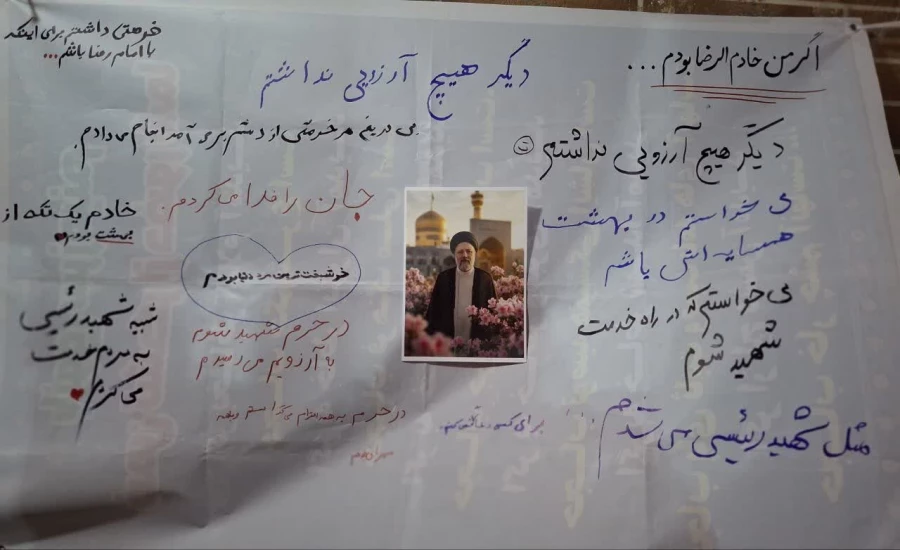 اگر من خادم الرضا بودم ...
فرصتی داشتم برای اینکه
با امام رضا باشم...
دیگر هیچ آرزویی نداشتم
بی دریغ هر خدمتی از دستم بر می آمد انجام می دادم.
دیگر هیچ آرزویی نداشتم
جان را فدا می کردم.
خادم یک تکه از
بهشت بودم
می خواستم در بهشت
همسایه اش باشم
خوشبخت ترین دنیا بودم
می خواستم که در راه خدمت
شهید شوم
شبیه شهید رئیسی
به مردم خدمت
می کردم
در حرم شهید شوم
به آرزویم می رسیدم
مثل شهید رئیسی می شدم
در حرم به همه احترام می گذاشتم
برای کسی دعا